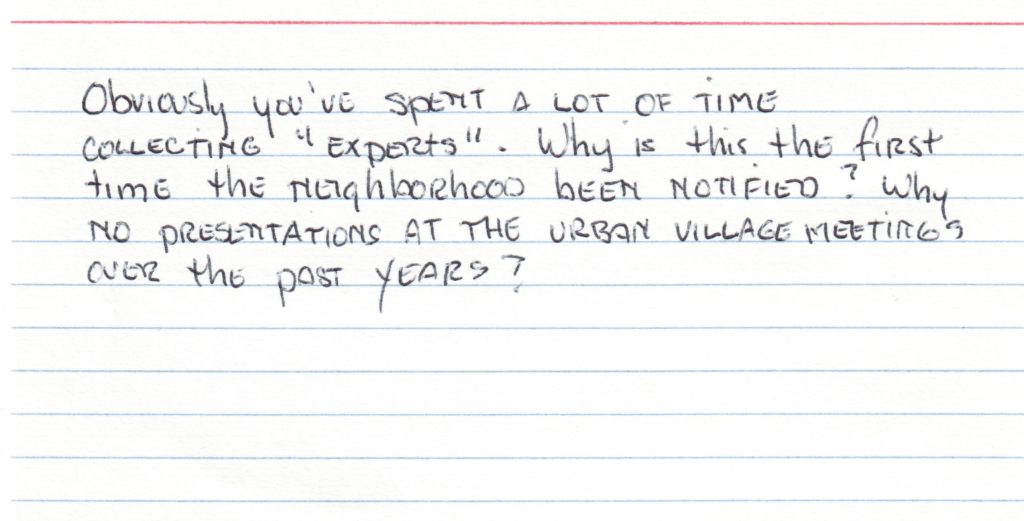 Obviously you've spent a lot of time
collecting "experts". Why is this the first
time the neighborhood been notified? Why
no presentations at the urban village meetings
over the past years?